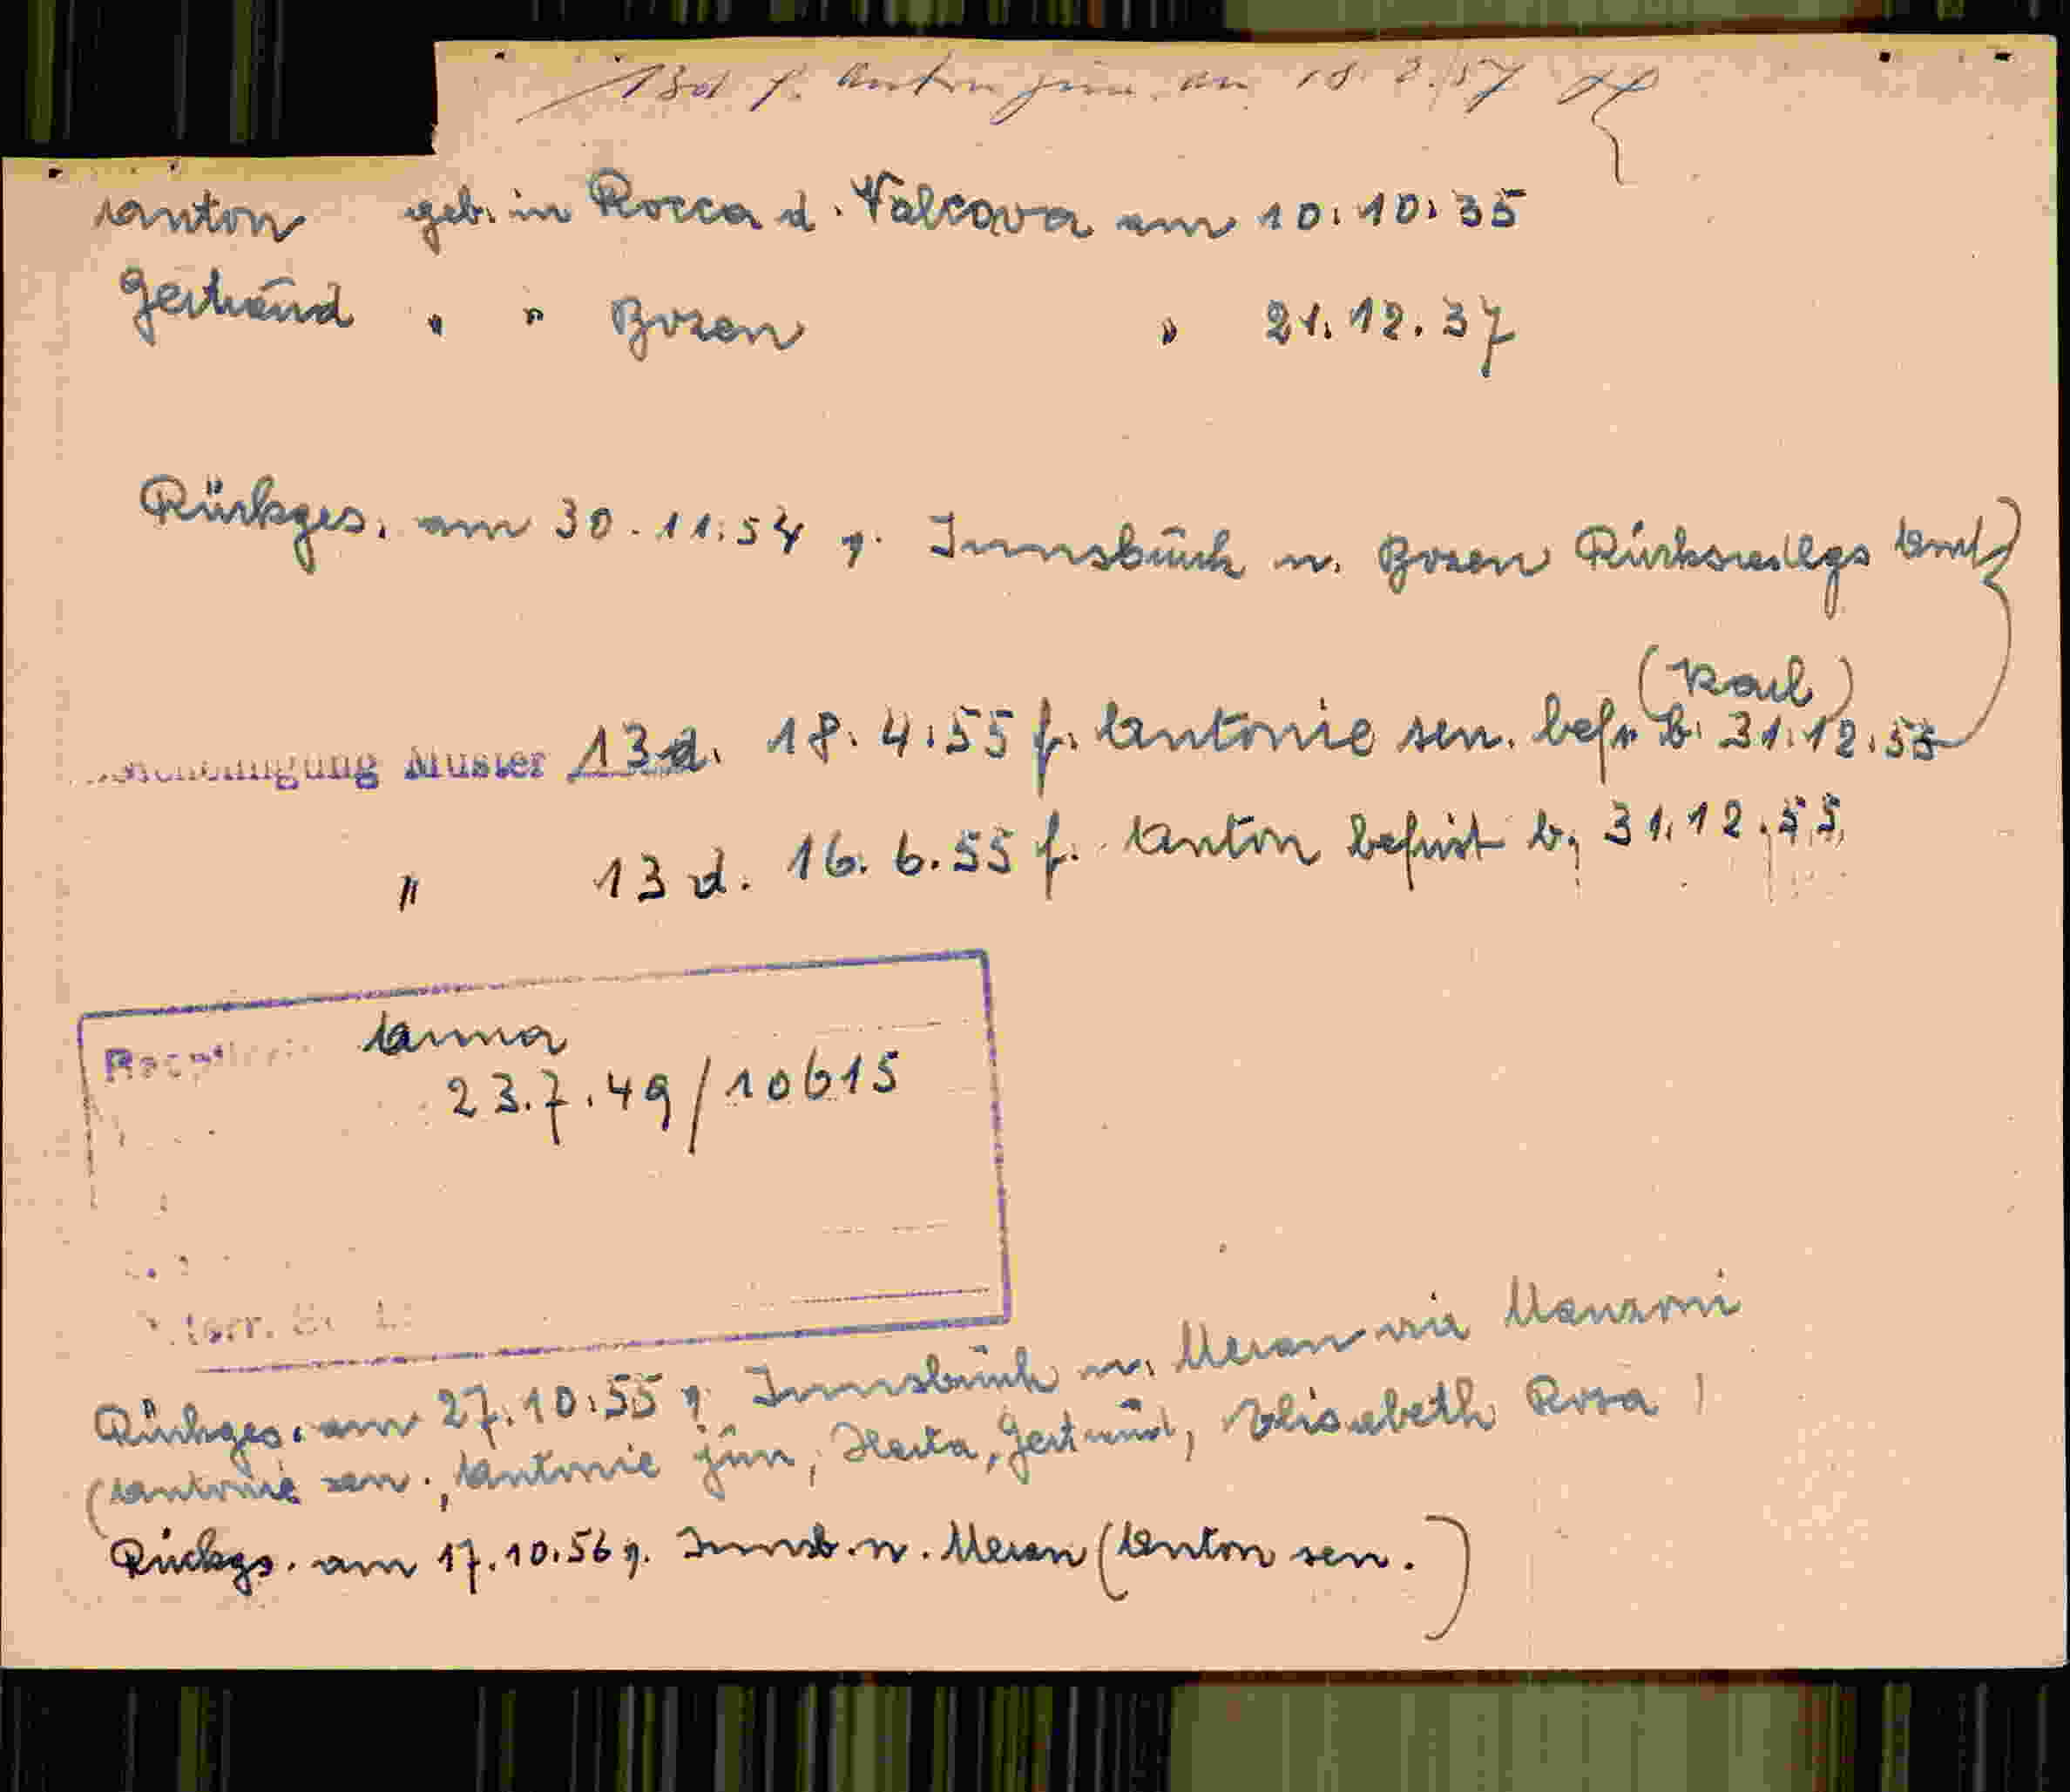 13d f. Anton jun. am 18.2.57
Anton geb. in Rocca d. Valcava am 10.10.35
Gertraud " " Bozen " 21.12.37
Rückges. am 30.11.54 g. Innsbruck n. Bozen Rücksiedlgs Amt
(Karl)
Bescheinigung Muster 13d. 18.4.55 f. Antonie sen. befr. b. 31.12.55
" 13d. 16.6.55 f. Anton befrist b. 31.12.55
Anna
23.7.49/10615
Rückges. am 27.10.55 g. Innsbruck n. Meran via Manzoni
(Antonie sen., Antonie jun, Herta, Gertraud, Elisabeth Rosa)
Rückgs. am 17.10.56 g. Innsb. n. Meran (Anton sen.)